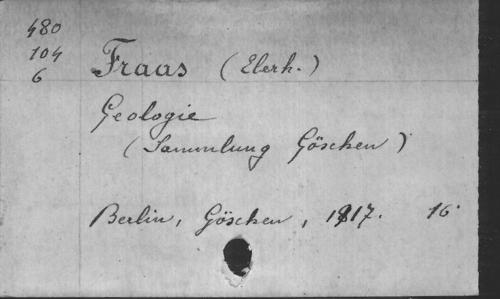 480
104
6
Fraas (Eberh.)
Geologie
(Sammlung Göschen)
Berlin, Göschen, 1917. 16°